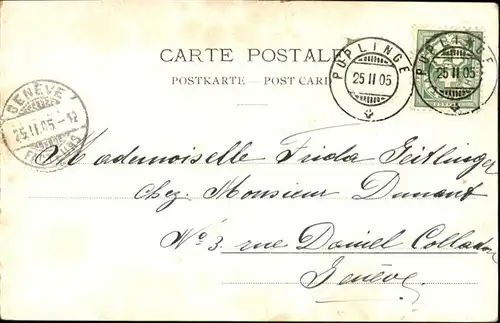 CARTE POSTALE
POSTKARTE — POST CARD
PUPLINGE
25 II 05
PUPLINGE
25 II 05
GENÈVE 1
25.II.05.-12
Mademoiselle Frida Geitlinger
chez Monsieur Dunant
No 3. rue Daniel Colladon
Genève.